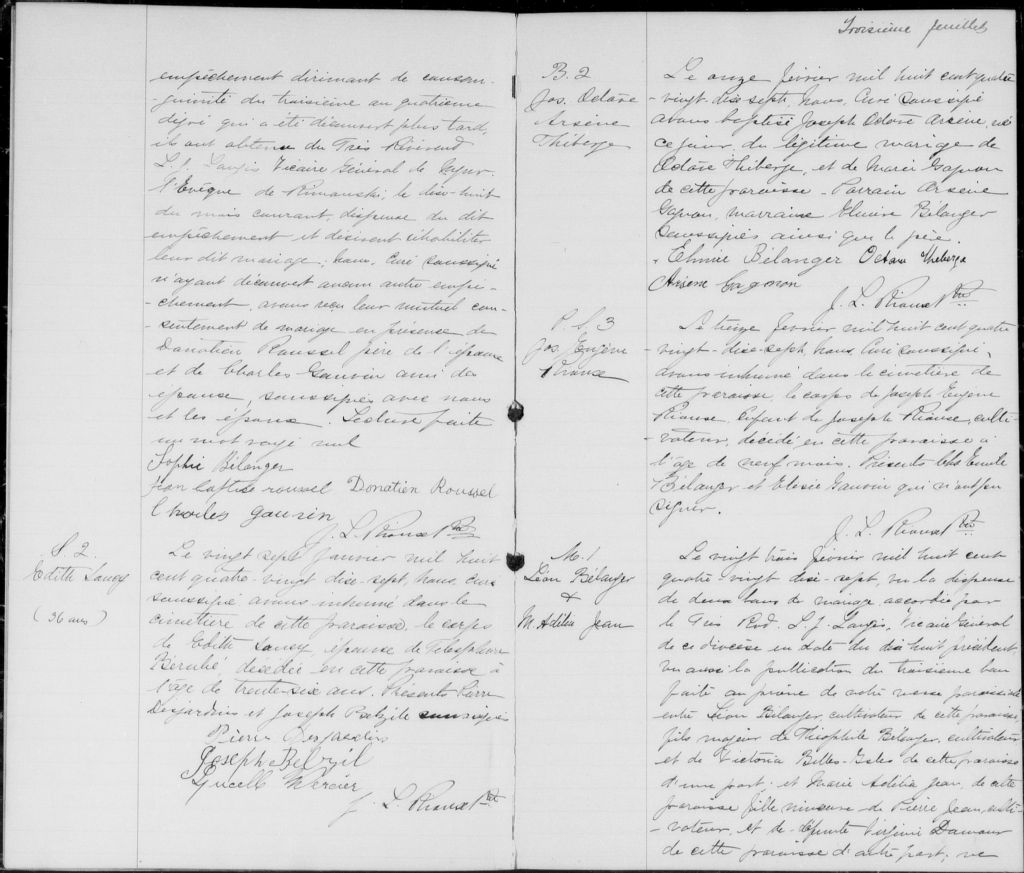 empêchement dirimant de consan-
-guinité du troisième au quatrième
degré qui a été découvert plus tard,
ils ont obtenu du Très Révérend
L. J. Langis Vicaire Général de Mgr
l'Evêque de Rimouski, le dix-huit
du mois courant, dispense du dit
empêchement et désirent réhabiliter
leur dit mariage; nous, Curé soussigné
n'ayant découvert aucun autre empê-
-chement, avons reçu leur mutuel con-
-sentement de mariage en présence de
Donatien Roussel père de l'époux
et de Charles Gauvin ami de
épouse, soussignés avec nous
et les époux. Lecture faite
un mot rayé nul
Sophie Bélanger
jean baptise roussel Donatien Roussel
Charles gauvin
J. L. Rioux Ptre
S. 2.
Edith Lancy
(36 ans)
Le vingt sept janvier mil huit
cent quatre-vingt dix-sept, nous, curé
soussigné avons inhumé dans le
cimetière de cette paroisse, le corps
de Edith Lancy, épouse de Télesphore
Bérubé décédée en cette paroisse à
l'âge de trente-six ans. Présents Pierre
Desjardins et Joseph Belzile soussignés
Pierre Desjardins
Joseph Belzil
Mercier
J. L. Rioux Ptre
Troisième feuillet
B. 2
Jos. Octave
Arsène
Thiberge
Le onze février mil huit cent quatre
-vingt-dix-sept, nous, Curé soussigné
avons baptisé Joseph Octave Arsène, né
ce jour, du légitime mariage de
Octave Thiberge, et de Marie Gagnon
de cette paroisse - Parrain Arsène
Gagnon, marraine Elmire Bélanger
soussignés ainsi que le père.
Elmire Bélanger Octave Theberge
Arsene Gagnon
J. L. Rioux Ptre
P. S. 3
Jos. Eugène
Rioux
Le treize février mil huit cent quatre
vingt-dix-sept, nous, Curé soussigné,
avons inhumé dans le cimetière de
cette paroisse, le corps de Joseph Eugène
Rioux, enfant de Joseph Rioux, culti-
-vateur, décédé en cette paroisse à
l'âge de neuf mois. Présents Chs Emile
Bélanger et Elosie Gauvin qui n'ont pu
signer.
J. L. Rioux Ptre
M. 1
Léon Bélanger
&
M. Adélia Jean
Le vingt trois février mil huit cent
quatre-vingt dix-sept, vu la dispense
de deux bans de mariage accordée par
le Très Rvd. L. J. Langis, Vicaire Général
de ce diocèse en date du dix huit précédent
vu aussi la publication du troisième ban
faite au prône de notre messe paroissiale
entre Léon Bélanger, cultivateur de cette paroisse,
fils majeur de Théophile Bélanger, cultivateur
et de Victoria Billes-Gales de cette paroisse
d'une part; et Marie Adélia Jean, de cette
paroisse fille mineure de Pierre Jean, culti-
-vateur, et de défunte Virginie Damour
de cette paroisse d'autre part; ne